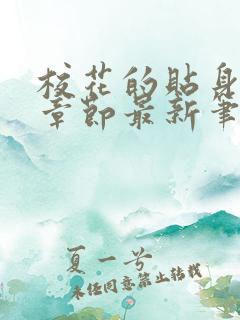 校花的贴身
章节最新笔
夏一兮
未经同意禁止转载